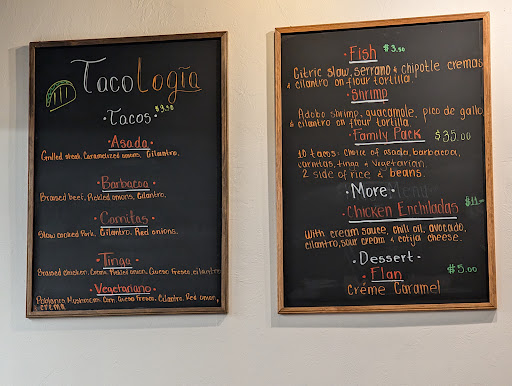 TacoLogia
·Tacos· $3.50
·Asada·
Grilled steak, Caramelized onions, Cilantro.
·Barbacoa·
Braised beef, Pickled onions, Cilantro.
·Carnitas·
Slow cooked Pork, Cilantro, Red onions.
·Tinga·
Braised Chicken, Crema, Pickled onion, Queso fresco, cilantro
·Vegetariano·
Poblanos, Mushrooms, Corn, Queso Fresco, Cilantro, Red onion,
& crema
·Fish $3.50
Citric slaw, serrano & chipotle cremas
& cilantro on flour tortilla
·Shrimp
Adobo shrimp, guacamole, pico de gallo
& cilantro on flour tortilla
·Family Pack $35.00
10 tacos: choice of asada, barbacoa,
carnitas, tinga & vegetarian.
2 side of rice & beans.
·More·
·Chicken Enchiladas $11.00
With cream sauce, chili oil, avocado,
cilantro, sour cream & cotija cheese.
·Dessert·
·Flan $5.00
Créme Caramel